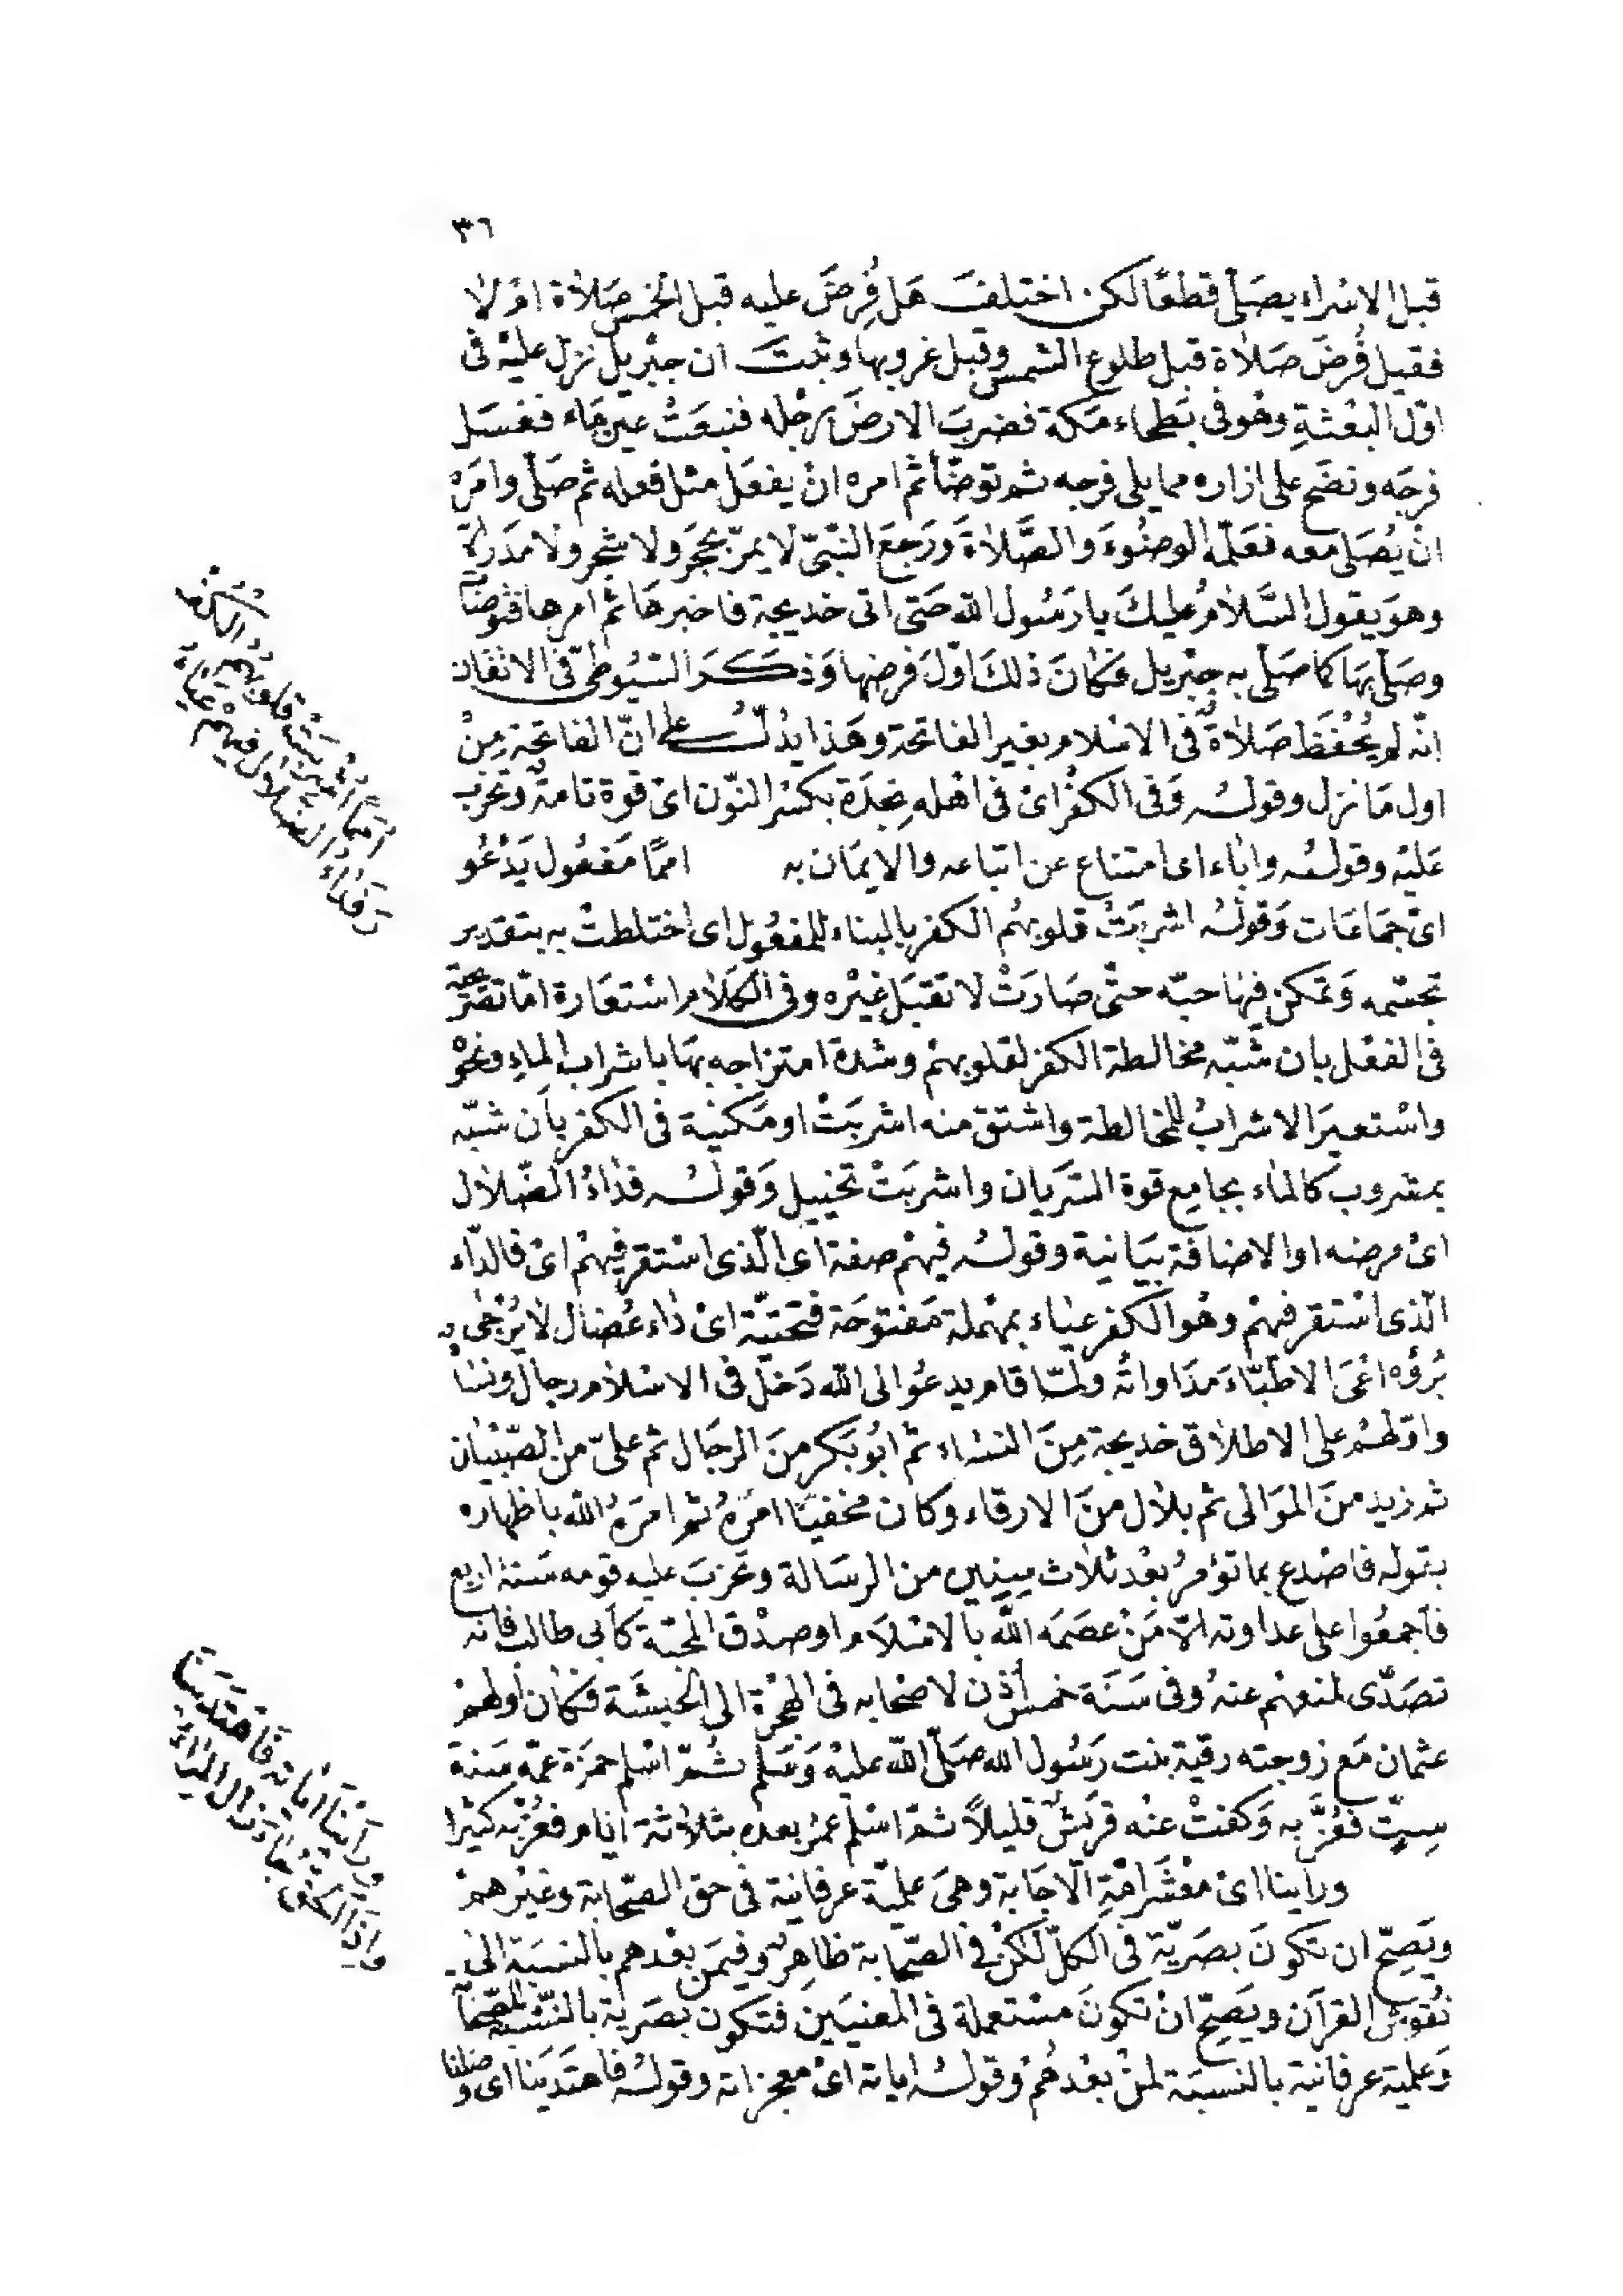 ٣٦
قبل الاسْراء يصَلّى قطعًا لكن اختلفَ هَل فُرِضَ عليه قبل الخمس صَلاة امْ لا
فقيل فُرضَ صَلاة قبل طلوع الشمس وقبل غروبها وثبتَ ان جبْريل نزل عليْه فى
اوّل البعْثةِ وهُو فى بَطحاء مَكة فضربَ الارضَ برجْله فنبعَتْ عين مَاء فغسَل
فرجَه ونضَح على ازاره مما يلى فرجه ثم توَضّأ ثم امره انْ يفعَل مثل فعله ثم صَلّى وامَرَهْ
انْ يُصَلى معه فعَلّمه الوضُوءَ والصَّلاةَ ورَجعَ النّبىّ لا يمرّ بحجَر ولا شجر ولا مدَر الّا
وهوَ يقول السَّلامُ عليكَ يا رَسُول الله حَتى اتى خديجة فاخبرهَا ثم امرها فتوضأت
وصَلّى بهَا كما صَلّى به جبْريل فكانَ ذلكَ اوّلَ فرضها وَذكَرَ السّيُوطىّ فى الاتقان
انّه لم يُحْفَظ صَلاةٌ فى الاسْلام بغير الفاتحة وهَذا يدُلّ على انّ الفاتحة مِنْ
اول مَا نزل وقولُه وَفى الكفْر اىْ فى اهْله نِجدَة بكسْر النّون اىْ قوّة تامةٌ وتحزب
عَليْه وقولُه واباء اى امتناع عن اتباعه والايمَان به امَمًا مَفعُول يَدْعُو
اىْ جَمَاعَات وَقولُه اشربَتْ قلوبهُم الكفر بالبناء للمفعُول اى اختلطتْ به بتقدير
تجسّمه وَتمكن فيهَا حبّه حتّى صَارَتْ لا تقبَل غيْره وفى الكَلام اسْتعَارة امّا تصْريحية
فى الفعْل بان شَبّه مخالطة الكفر لقلوبهمْ وشدة امتزاجه بهَا باشراب الماءِ ونحْوه
واسْتعيرَ الاشرابُ للمخالطة واشتق منه اشربَتْ او مَكنيّة فى الكفر بأن شبّه
بمشروب كالماء بجامِع قوة السّرَيان واشربَتْ تخييل وَقولُه فدَاءُ الضّلال
اىْ مرضه او الاضافة بيَانية وقولُه فيهمْ صفة اى الّذى اسْتقر فيهمْ اىْ فالدّاء
الّذى اسْتقر فيهمْ وهُو الكفر عيَاء بمهْملة مَفتوحَة فتحتيّة اىْ دَاء عُضال لا يُرْجَى
بُرؤه اعْيَى الاطبّاءَ مدَاواتُه ولمّا قام يدعُو الى الله دَخلَ فى الاسْلام رجال ونسَاء
واوّلهُم على الاطلاق خديجة مِنَ النساء ثم ابُو بَكر منَ الرجَال ثم علىّ من الصّبْيان
ثم زيد منَ الموَالى ثم بلال منَ الارقاء وكان مخفيًا امرَهُ ثم امرَهُ الله باظهاره
بقوله فاصْدع بما تؤمَرُ بعْد ثلاث سِنين من الرسَالة وتحَزبَ عليه قومه سَنة اربع
فاَجمعُوا على عداوته الّا مَنْ عصَمَه الله بالاسْلَام او صدْق المحبّة كاَبى طالب فانه
تصَدّى لمنعِهمْ عنهُ وفى سَنَة خمس أذن لاصْحابه فى الهجْرة الى الحبشَة فكان اولهمْ
عثمان مَع زوجته رقيّة بنت رَسُول الله صَلّى الله عليْهِ وَسَلّم ثُمّ اسْلم حمَزة عمّه سَنة
سِتٍّ فعُزَّ به وَكفتْ عنْه قريْشٌ قليلًا ثم اسْلم عمرُ بعده بثلاثة ايّام فعُزّ به كثيرًا
ورأينا اىْ مَعْشَر امّةِ الاجَابة وهىَ علميّة عرفانيّة فى حق الصّحابة وغيْرهمْ
ويَصِحّ ان تكونَ بصَريّة فى الكلّ لكنْ فى الصّحابة ظاهِرٌ وفيمَن بعْدهم بالنسبَة الى
نُقوش القرآن ويَصِحّ انْ تكونَ مسْتعملة فى المعنيَين فتكون بصَريّة بالنّسْبَة للصّحابة
وَعلمية عرفانية بالنسبَة لمنْ بعْدهُمْ وقولُه اياته اىْ معجزاته وقولُه فاهتَديَنا اى وصَلنا
اُمَمًا اُشْرِبَتْ قُلُوبُهُمُ الْكُفْ
رَ فَدَاءُ الضَّلَالِ فِيهِمْ عَيَاءُ
وَرَأَيْنَا آيَاتِهِ فَاهْتَدَيْنَا
وَاِذَا الْحَقُّ جَاءَ زَالَ الْمِرَاءُ